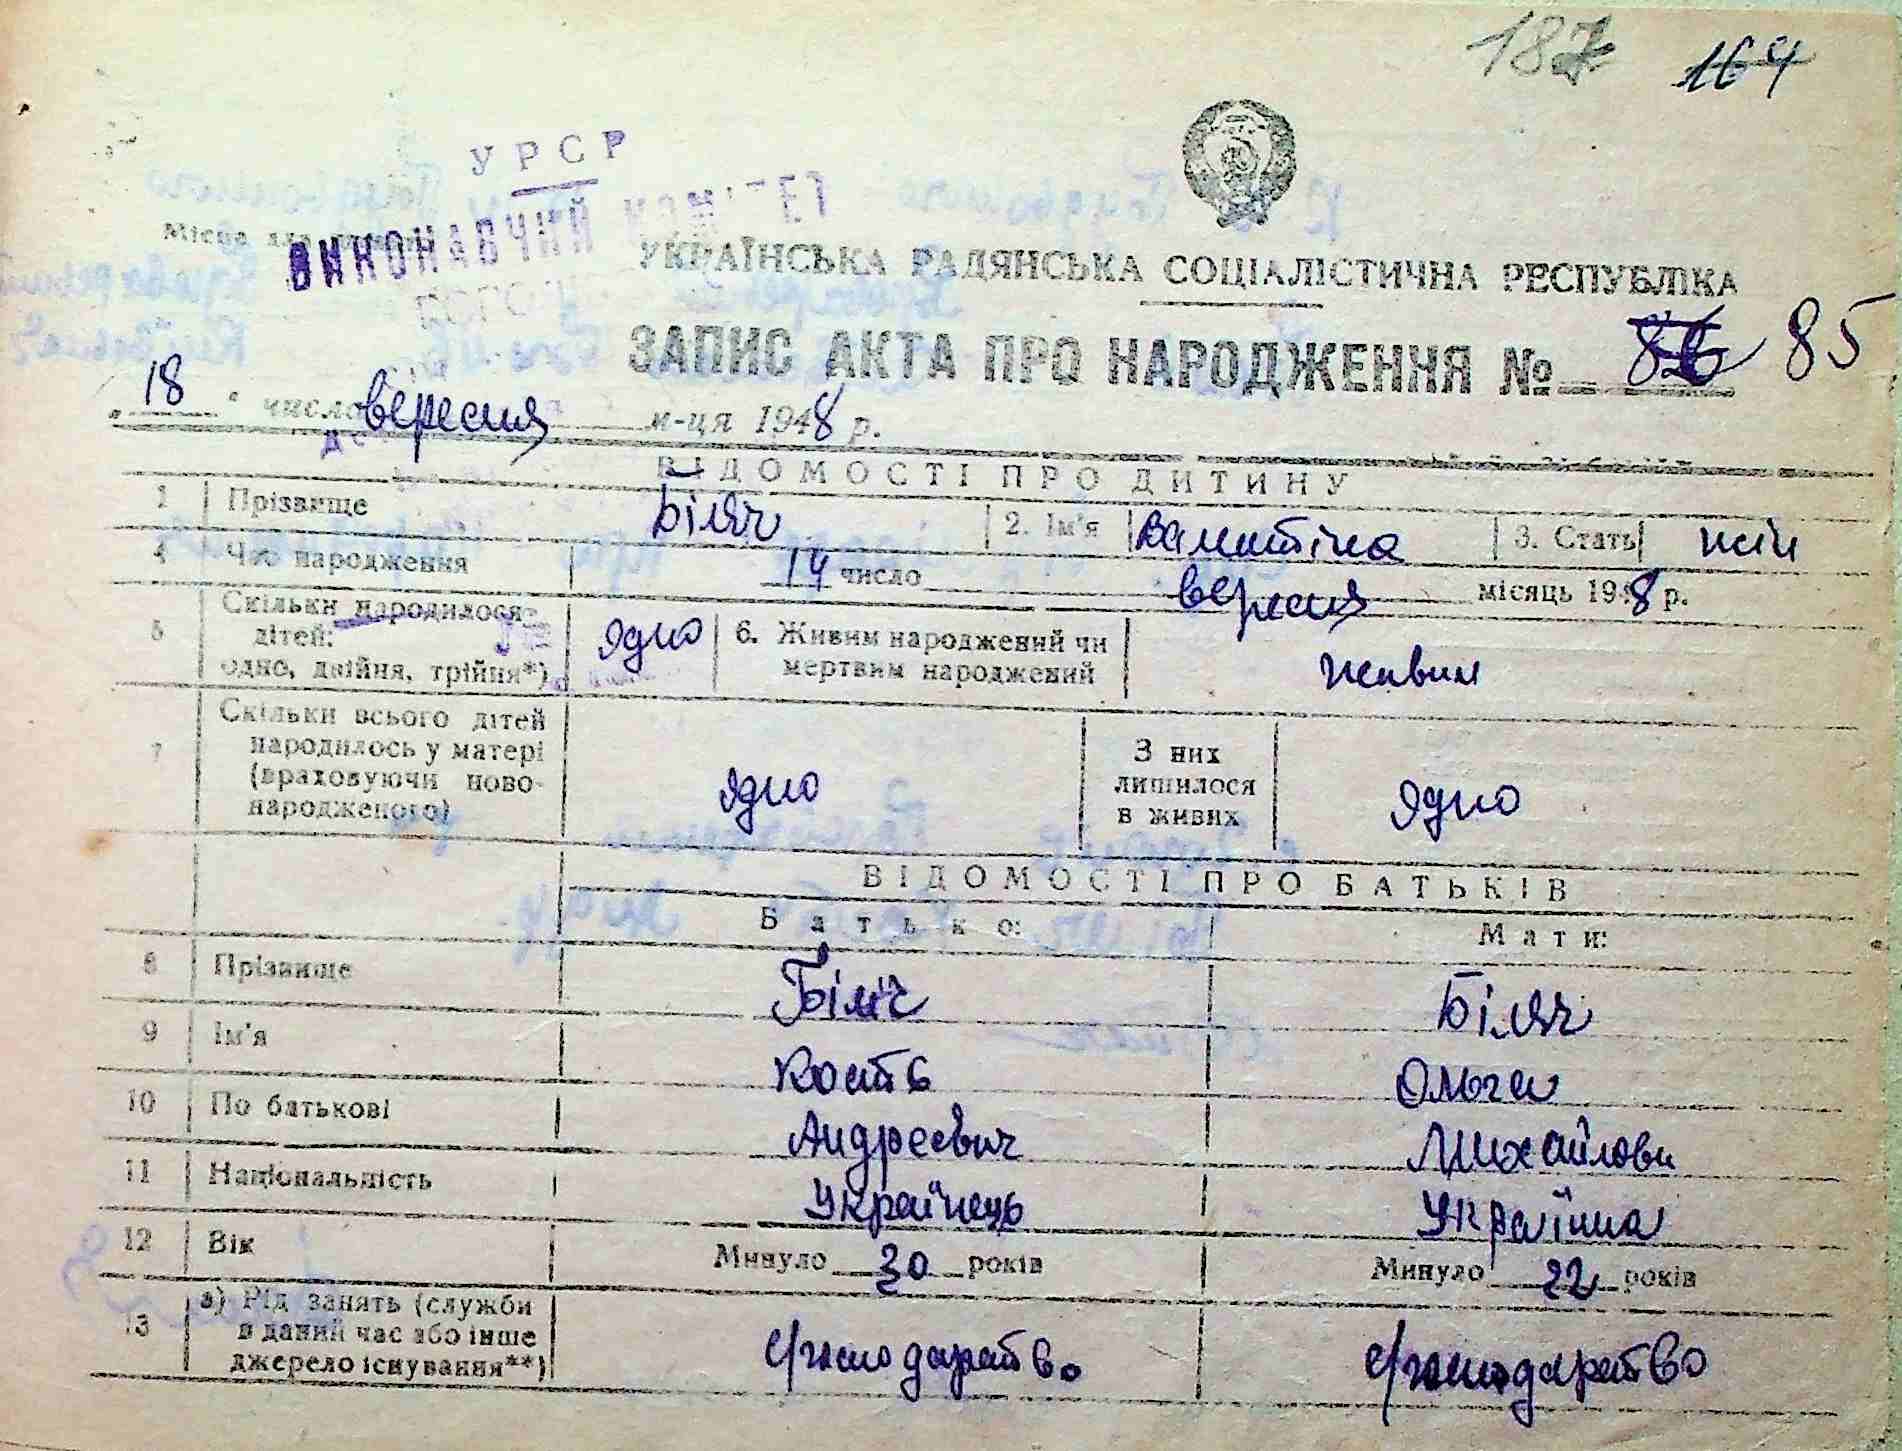 187 164
УРСР
Місце для
ВИКОНАВЧИЙ КОМІТЕТ
УКРАЇНСЬКА РАДЯНСЬКА СОЦІАЛІСТИЧНА РЕСПУБЛІКА
ЗАПИС АКТА ПРО НАРОДЖЕННЯ № 86 85
„18“ число вересня м-ця 1948 р.
ВІДОМОСТІ ПРО ДИТИНУ
1 Прізвище Біляч 2. Ім'я Валентіна 3. Стать жін
4 Час народження 14 число вересня місяць 1948 р.
5 Скільки народилося
дітей:
одно, двійня, трійня*) ядно 6. Живим народжений чи
мертвим народжений живим
7 Скільки всього дітей
народилось у матері
(враховуючи ново-
народженого) ядно
З них
лишилося
в живих ядно
ВІДОМОСТІ ПРО БАТЬКІВ
Батько: Мати:
8 Прізвище Біліч Біляч
9 Ім'я Кость Ольга
10 По батькові Андреєвич Михайлови
11 Національність Українець Українка
12 Вік Минуло 30 років Минуло 22 років
13 а) Рід занять (служби
в даний час або інше
джерело існування**) с/господарство с/господарство